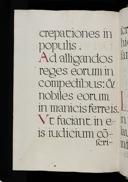 crepationes in
populis.
Ad alligandos
reges eorum in
compedibus: &
nobiles eorum
in manicis ferreis.
Vt faciant in e-
is iudicium cō-
scri-